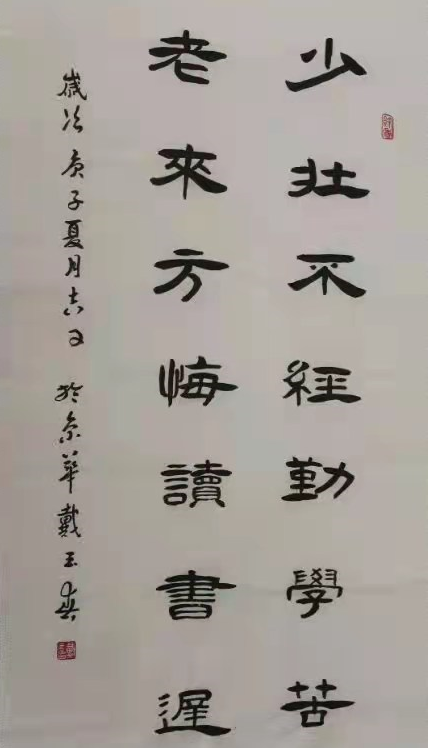 少壮不經勤學苦
老來方悔讀書遲
歲次庚子夏月吉日 於京華戴玉